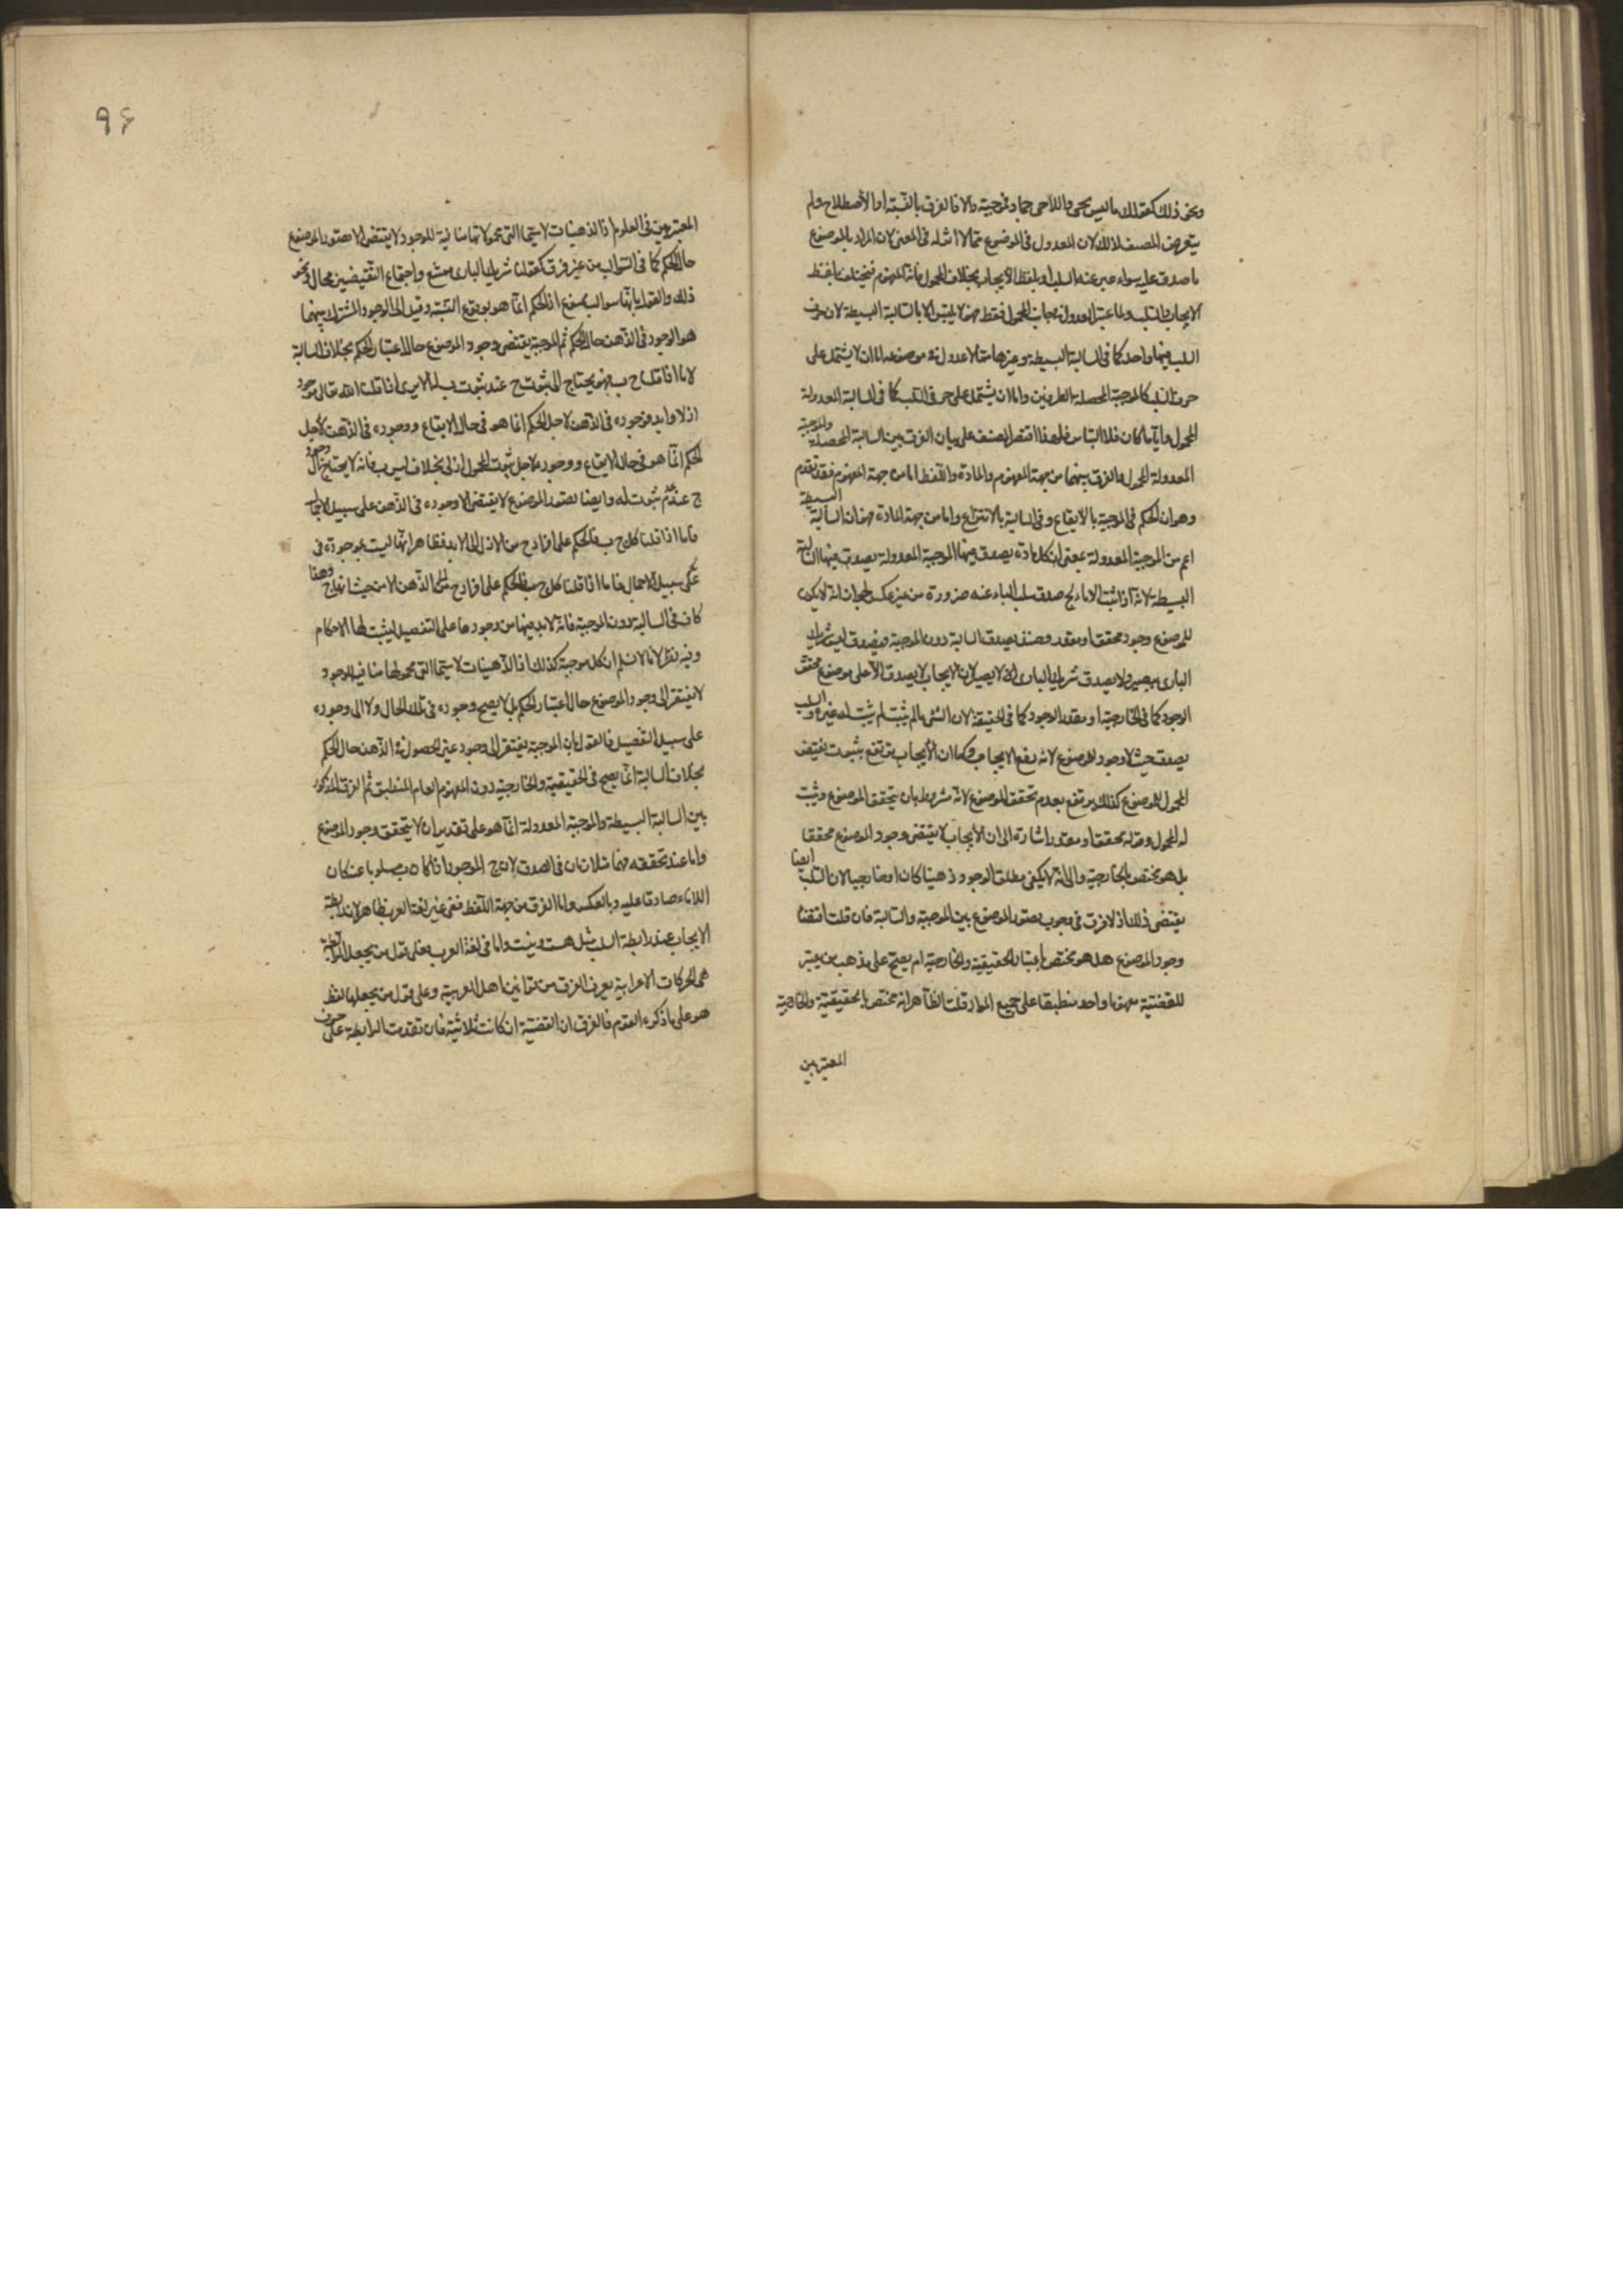 ونحو ذلك كقولك ما ليس بحى واللاحى جماد فموجبة والا فالفرق بالنية او الاصطلاح ولم
يتعرض المصنف لذلك لان المعدول فى الموضوع مما لا اثر له فى المعنى لان المراد بالموضوع
ما صدق عليه سواء عبر عنه بالسلب او بلفظ الايجاب بخلاف المحمول فانه المفهوم فيختلف بلفظ
الايجاب والسلب ولما عتبر العدول فى جانب المحمول فقط فهو لا يلتبس الا بالسالبة البسيطة لان حرف
السلب فيهما واحد كما فى السالبة البسيطة وغيرها مما لا عدول فى موضوعه اما ان لا يشتمل على
حرف السلب كالموجبة المحصلة الطرفين واما ان يشتمل على حرفى السلب كما فى السالبة المعدولة
المحمول وايا ما كان فلا التباس فلهذا اقتصر المصنف على بيان الفرق بين السالبة المحصلة والموجبة
المعدولة المحمول والفرق بينهما من جهة المفهوم والمادة واللفظ اما من جهة المفهوم فقد تقدم
وهو ان الحكم فى الموجبة بالايقاع وفى السالبة بالانتزاع واما من جهة المادة فهو ان السالبة البسيطة
اعم من الموجبة المعدولة بمعنى ان كل مادة يصدق فيها الموجبة المعدولة يصدق فيها السالبة
البسيطة لانه اذا ثبت اللاباء لج صدق سلب الباء عنه ضرورة من غير عكس لجواز ان لا يكون
للموضوع وجود محقق او مقدر وحينئذ يصدق السالبة دون الموجبة فيصدق ليس شريك
البارى ببصير ولا يصدق شريك البارى لا بصير لان الايجاب لا يصدق الا على موضوع محقق
الوجود كما فى الخارجية او مقدر الوجود كما فى الحقيقية لان الشئ ما لم يثبت لم يثبت له غيره والسلب
يصدق حيث لا وجود للموضوع لانه رفع الايجاب وكما ان الايجاب يرتفع بثبوت نقيض
المحمول للموضوع كذلك يرتفع بعدم تحقق الموضوع لانه مشروط بان يتحقق الموضوع ويثبت
له المحمول وقوله محققا او مقدرا اشارة الى ان الايجاب لا يقتضى وجود الموضوع محققا
بل هو مختص بالخارجية والى انه لا يكفى مطلق الوجود ذهنيا كان او خارجيا لان السلب ايضا
يقتضى ذلك اذ لا فرق فى وجوب تصور الموضوع بين الموجبة والسالبة فان قلت اقتضاء
وجود الموضوع هل هو مختص باعتبار الحقيقية والخارجية ام يصح على مذهب من يعتبر
للقضية مفهوما واحد منطبقا على جميع المواد قلت الظاهر انه مختص بالحقيقية والخارجية
المعتبرين
٩٦
المعتبرين فى العلوم اذ الذهنيات لا سيما التى محمولاتها منافية للوجود لا يقتضى الا تصور الموضوع
حال الحكم كما فى السوالب من غير فرق كقولنا شريك البارى ممتنع واجتماع النقيضين محال ونحو
ذلك والقول بانها سوالب ممنوع اذ الحكم انما هو بوقوع النسبة وقيل المراد بالوجود المشترك بينهما
هو الوجود فى الذهن حال الحكم ثم الموجبة يقتضى وجود الموضوع حال اعتبار الحكم بخلاف السالبة
لانا اذا قلنا ج ب فهو يحتاج الى ثبوت ج عند ثبوت ب له الا يرى انا اذا قلنا الله تعالى موجود
ازلا وابدا فوجوده فى الذهن لاجل الحكم انما هو فى حال الايقاع ووجوده فى الذهن لاجل
الحكم انما هو فى حال الايقاع ووجوده لاجل ثبوت المحمول ازلى بخلاف ليس ب فانه لا يحتاج الى وجود
ج عند عدم ثبوت له وايضا تصور الموضوع لا يقتضى الا وجوده فى الذهن على سبيل الاجمال
فانا اذا قلنا كل ج ب فالحكم على افراد ج من الازل الى الابد فظاهر انها ليست بموجودة فى
على سبيل الاجمال فانا اذا قلنا كل ج ب فالحكم على افراد ج فى الذهن الا من حيث انها ج وهذا
كاف فى السالبة دون الموجبة فانه لا بد فيها من وجودها على التفصيل ليثبت لها الاحكام
وفيه نظر لانا لا نسلم ان كل موجبة كذلك اذ الذهنيات لا سيما التى محمولها منافية للوجود
لا يفتقر الى وجود الموضوع حال اعتبار الحكم بل لا يصح وجوده فى تلك الحال ولا الى وجوده
على سبيل التفصيل فالقول بان الموجبة يفتقر الى وجود غير الحصول فى الذهن حال الحكم
بخلاف السالبة انما يصح فى الحقيقية والخارجية دون المفهوم العام المنطبق ثم الفرق المذكور
بين السالبة البسيطة والموجبة المعدولة انما هو على تقدير ان لا يتحقق وجود الموضوع
واما عند تحققه فهما متلازمان فى الصدق لان ج الموجود اذا كان ب مسلوبا عنه كان
اللاباء صادقا عليه وبالعكس واما الفرق من جهة اللفظ ففى غير لغة العرب ظاهر لان رابطة
الايجاب غير رابطة السلب مثل هست ونيست واما فى لغة العرب فعلى قول من يجعل الرابطة
هى الحركات الاعرابية يعرف الفرق من قوانين اهل العربية وعلى قول من يجعلها لفظ
هو على ما ذكره القوم فالفرق ان القضية ان كانت ثلاثية فان تقدمت الرابطة على حرف